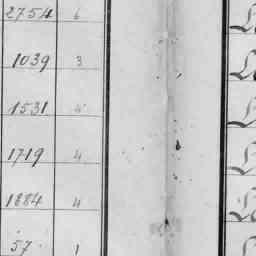 2754 6
1039 3
1531 4
1719 4
1884 4
57 1